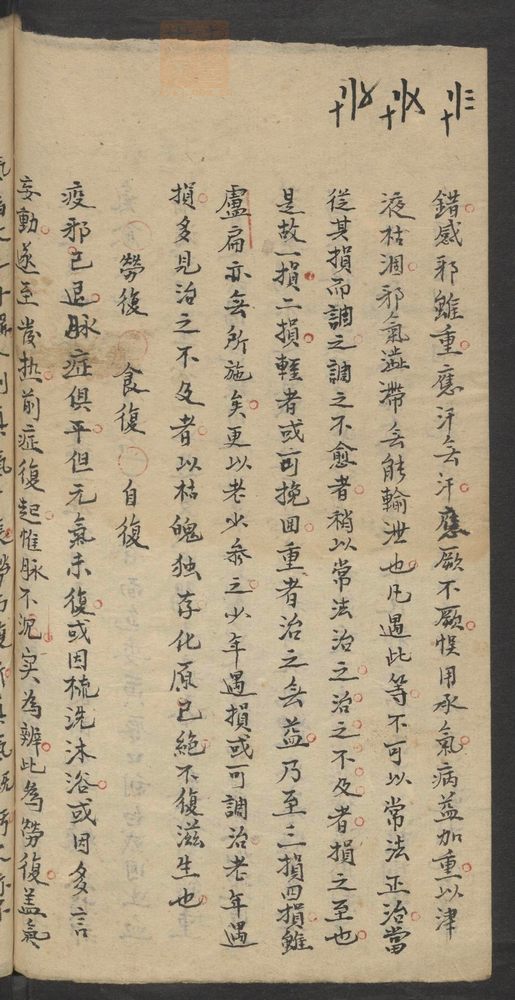 錯感邪雖重應汗無汗應厥不厥悮用承氣病益加重以津
液枯涸邪氣澁滯無能輸泄也凡遇此等不可以常法正治當
從其損而調之調之不愈者稍以常法治之治之不及者損之至也
是故一損二損輕者或可挽回重者治之無益乃至三損四損雖
盧扁亦無所施矣更以老少參之少年遇損或可調治老年遇
損多見治之不及者以枯魄独存化原已絶不復滋生也
勞復 食復 自復
疫邪已退脉症俱平但元氣未復或因梳洗沐浴或因多言
妄動遂至發热前症復起惟脉不沉实為辨此為勞復盖氣